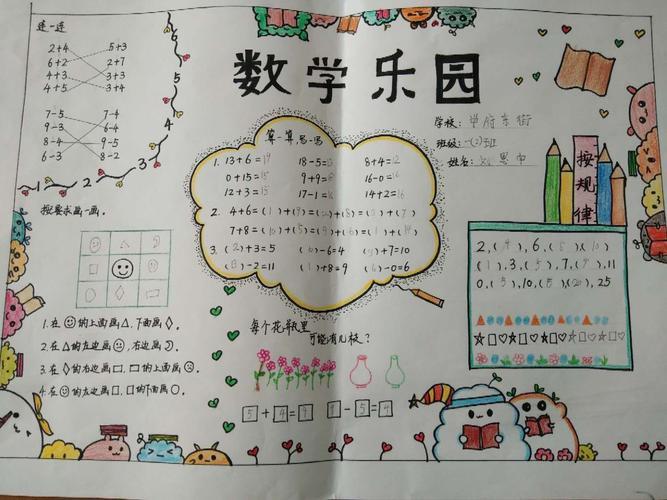 数学乐园
学校：学府东街
班级：一(2)班
姓名：
连一连
2+4 5+3
6+2 2+7
4+3 3+3
4+5 3+4
7-5 7-4
9-3 6-4
8-4 9-5
6-3 8-2
1 2 3 4 5 6
按要求画一画。
1.在的上面画△,下面画◇。
2.在△的左边画,右边画。
3.在◇的右边画□,□的上面画。
4.在的左边画□,□的下面画○。
算一算,思一写
1. 13+6=19 18-5=13 8+4=12
0+15=15 9+9=18 16-0=16
12+3=15 17-1=16 14+2=16
2. 4+6=(1)+(9)=(2)+(8)=(3)+(7)
7+8=(10)+(5)=(9)+(6)=(1)+(14)
3. (2)+3=5 (10)-6=4 (3)+7=10
(13)-2=11 (1)+8=9 (6)-0=6
每个花瓶里
可能有几枝?
5+4=9 9-5=4
按规律
2,(4),6,(8),(10)
(1),3,(5),7,(9),11
0,(5),10,(15),(20),25